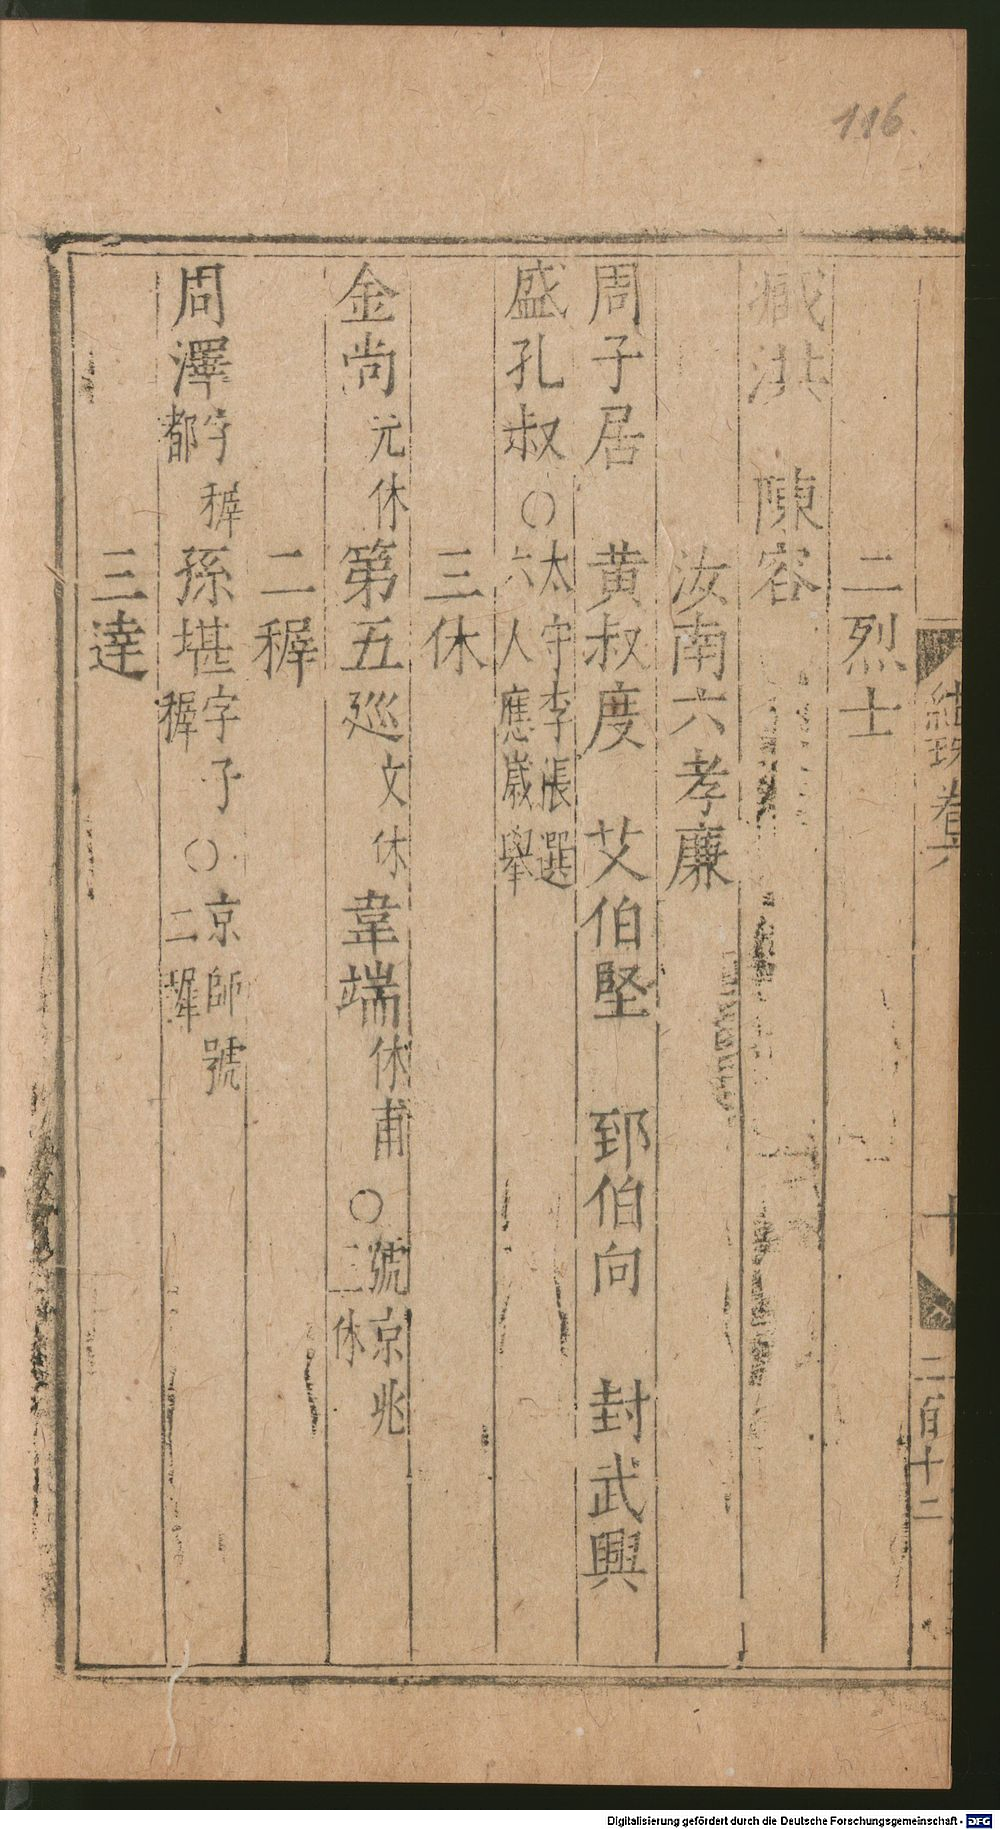 116.
二烈士
臧洪　陳容
汝南六孝廉
周子居　黄叔度　艾伯堅　郅伯向　封武興
盛孔叔○太守李張選六人應歲舉
三休
金尚元休第五巡文休韋端休甫○號京兆三休
二穉
周澤字穉都孫堪字子穉○京師號二穉
三達
卷六
十
二百十二
Digitalisierung gefördert durch die Deutsche Forschungsgemeinschaft - DFG